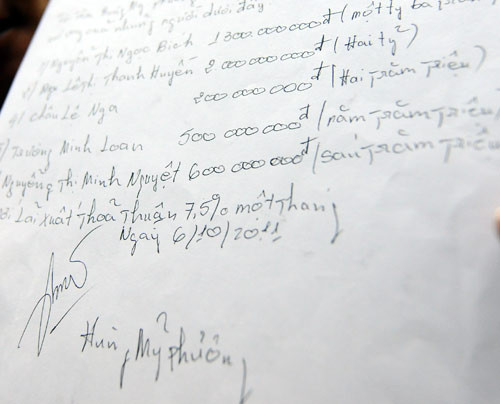 Tôi Tên Huing Mỹ
những người dưới đây
1/ Nguyễn Thị Ngọc Bích 1300 000 000đ (một tỷ ba
2/ Mai Lệ Thị Thanh Huyền 2 000 000 000đ (Hai tỷ)
4/ châu Lê Nga 200 000 000đ (Hai Trăm Triệu)
5/ Trương Minh Loan 500 000 000đ (năm Trăm Triệu
Nguyễn Thị Minh Nguyệt 600 000 000đ (sáu Trăm Triệu
Lãi xuất Thoả Thuận 7,5% một Tháng
Ngày 6/10/2011
Huing Mỹ Phương